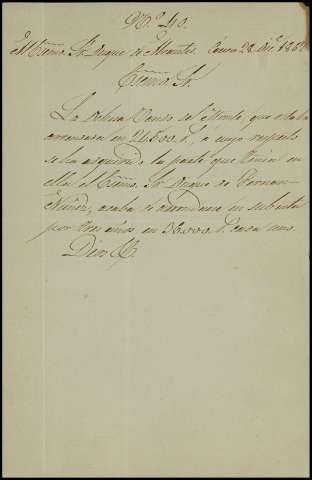 Nº. 40.
Al Exmo. Sr. Duque de Abrantes Enero 28 de 185
Exmo. Sr.
La dehesa Campo del Monte, que estaba
arrendada en 21.500 r, á cuyo respecto
se ha adquirido la parte que tenia en
ella el Exmo. Sr. Duque de Fernan-
Nuñez, acaba de arrendarse en subasta
por tres años en 36.000 r. cada uno.
Dios &.